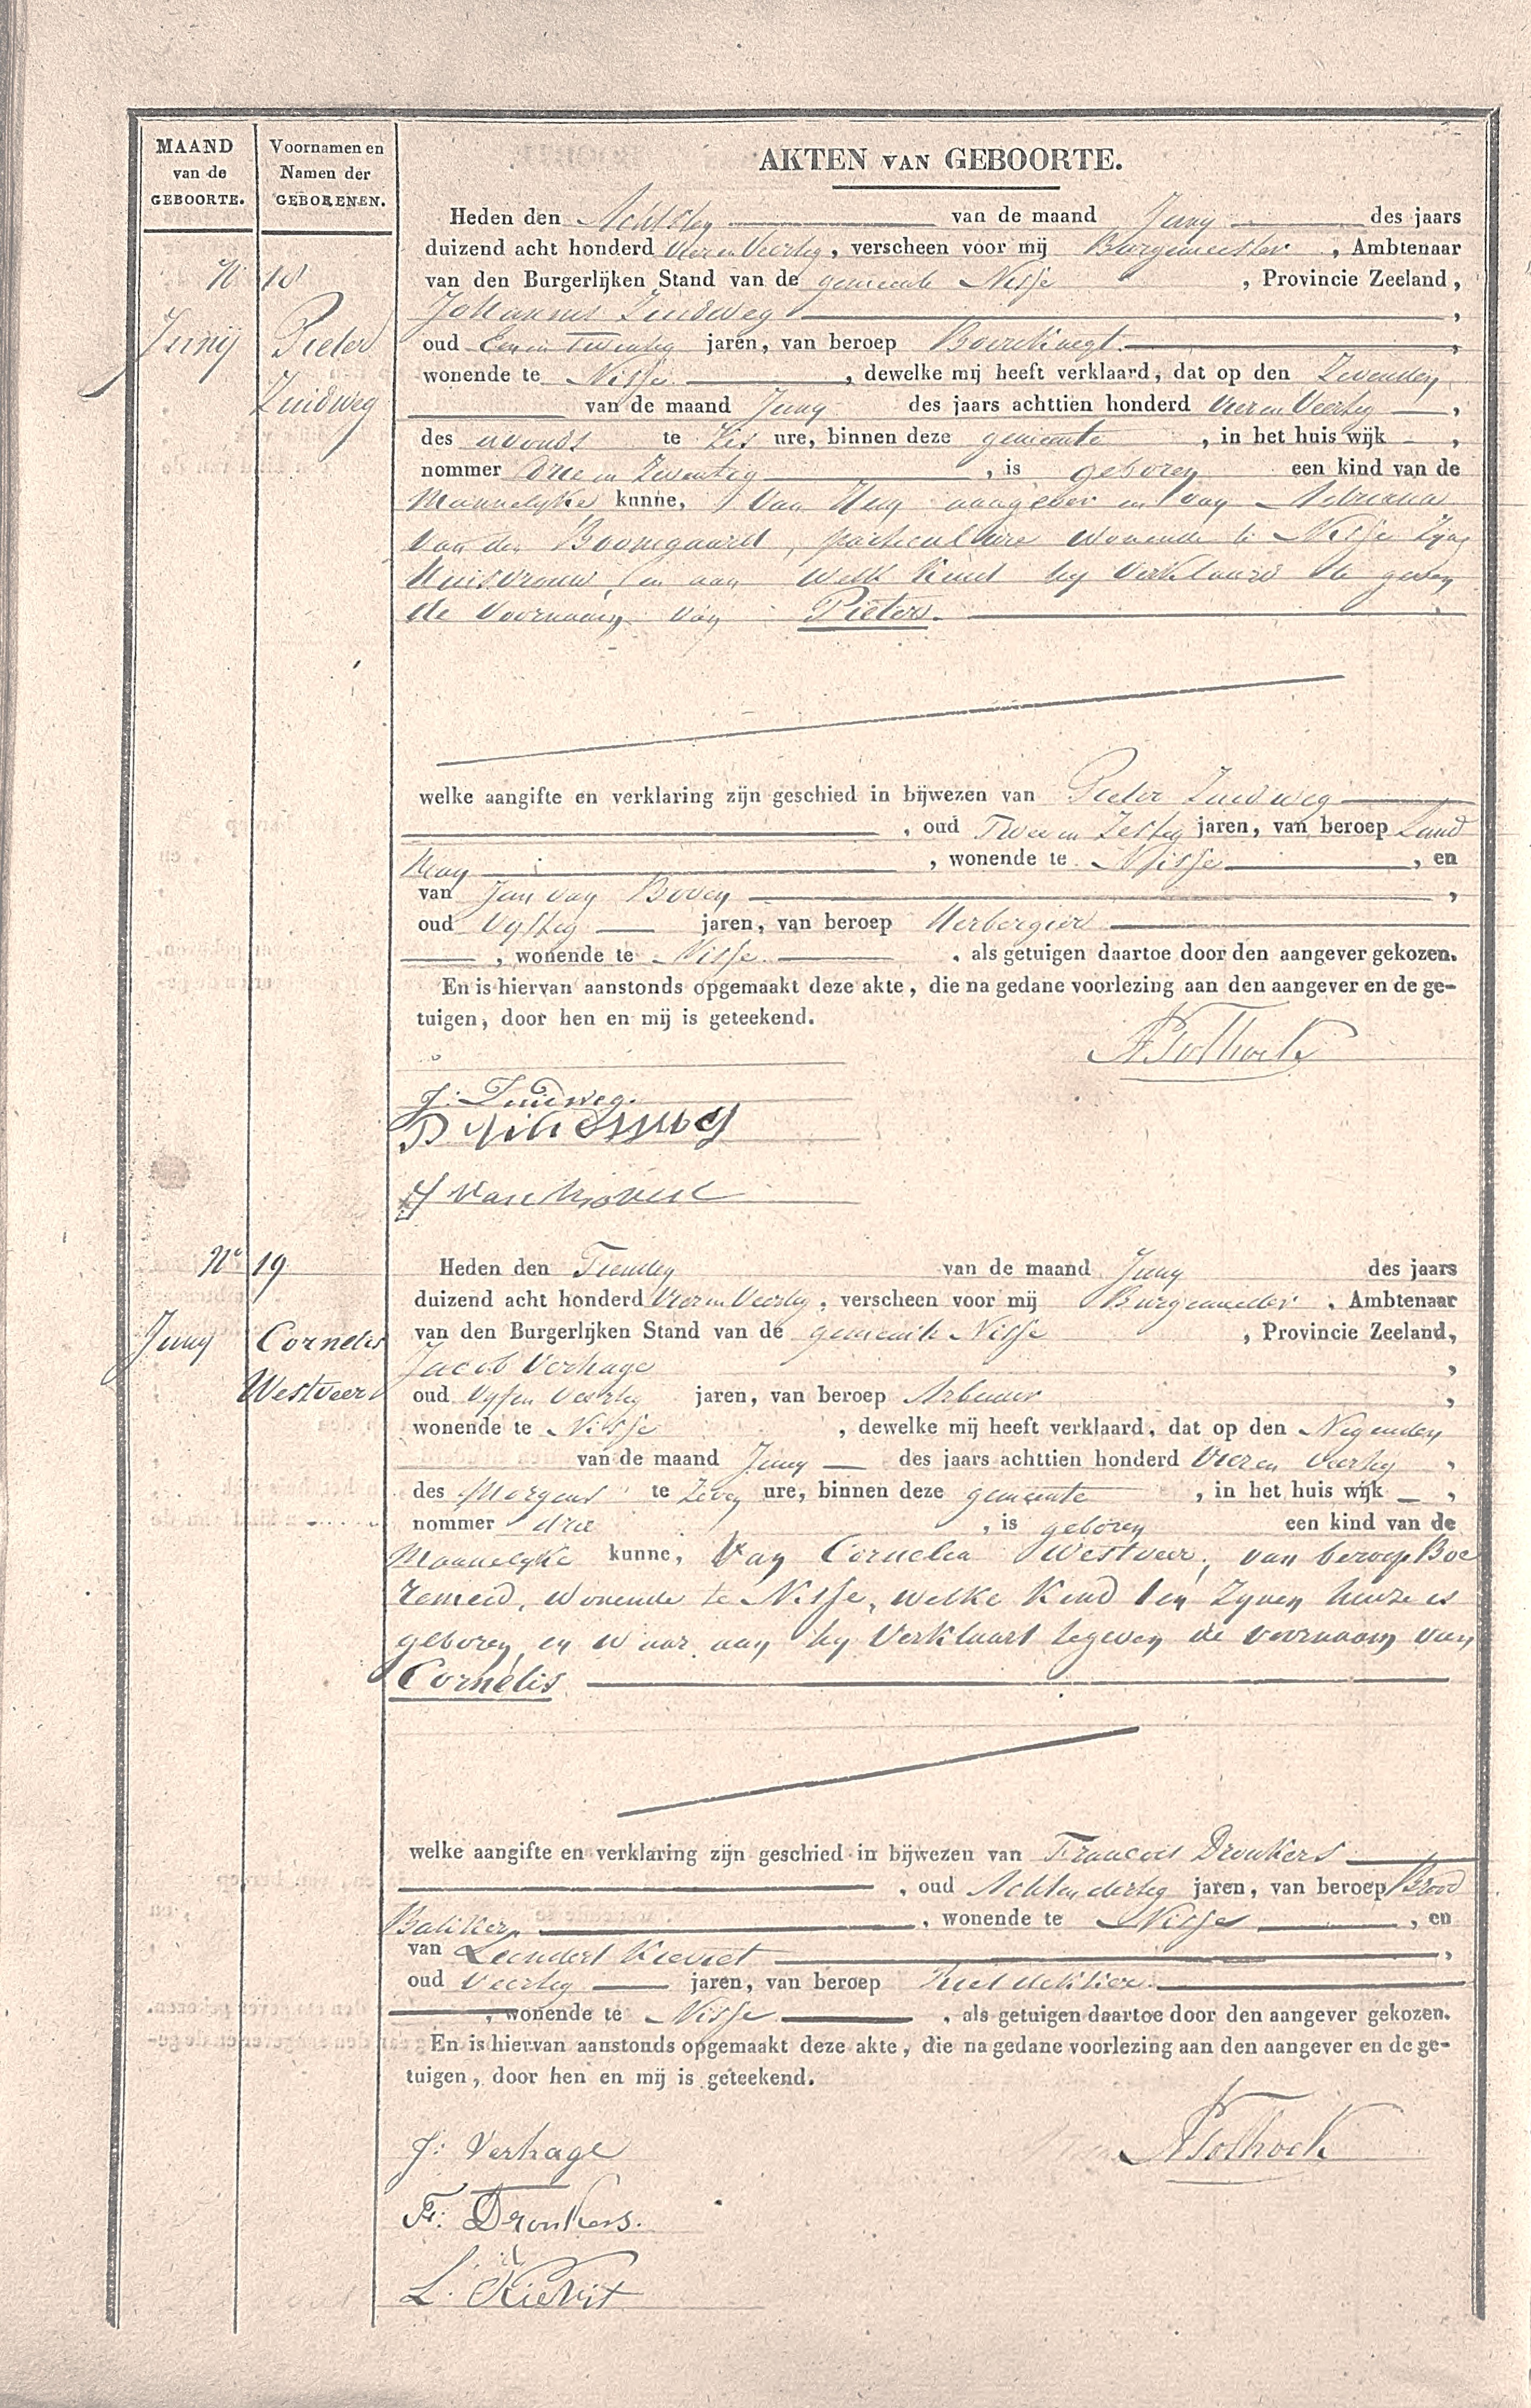 MAAND van de GEBOORTE.
Voornamen en Namen der GEBORENEN.
AKTEN VAN GEBOORTE.
N 18
Junij Pieter
Zuidweg
Heden den Achtsten van de maand Juny des jaars
duizend acht honderd Vier en Veertig, verscheen voor mij Burgemeester, Ambtenaar
van den Burgerlijken Stand van de gemeente Nisse, Provincie Zeeland,
Johannis Zuidweg,
oud Een en Twintig jaren, van beroep Boereknegt,
wonende te Nisse, dewelke mij heeft verklaard, dat op den Zevenden
van de maand Juny des jaars achttien honderd Vier en Veertig,
des avonds te Zes ure, binnen deze gemeente, in het huis wijk —,
nommer Drie en Zeventig, is geboren een kind van de
Mannelyke kunne, Van Hem aangever en van Adriana
van den Boomgaard, particuliere wonende te Nisse zyne
Huisvrouw, en aan welk Kind hy verklaard te geven
de Voornaam van Pieter.
welke aangifte en verklaring zijn geschied in bijwezen van Pieter Zuidweg
, oud Twee en Zestig jaren, van beroep Land
Man, wonende te Nisse, en
van Jan van Boven,
oud Vyftig jaren, van beroep Herbergier
, wonende te Nisse, als getuigen daartoe door den aangever gekozen.
En is hiervan aanstonds opgemaakt deze akte, die na gedane voorlezing aan den aangever en de ge-
tuigen, door hen en mij is geteekend.
A Tolhoek
J: Zuidweg.
P Zuidweg
J van Boven
No 19
Juny Cornelis
Westveer
Heden den Tienden van de maand Juny des jaars
duizend acht honderd Vier en Veertig, verscheen voor mij Burgemeester, Ambtenaar
van den Burgerlijken Stand van de gemeente Nisse, Provincie Zeeland,
Jacob Verhage,
oud Vyf en Veertig jaren, van beroep Arbeider,
wonende te Nisse, dewelke mij heeft verklaard, dat op den Negenden
van de maand Juny des jaars achttien honderd Vier en Veertig,
des Morgens te Zeven ure, binnen deze gemeente, in het huis wijk —,
nommer drie, is geboren een kind van de
Mannelyke kunne, Van Cornelia Westveer, van beroep Boe
remeid, wonende te Nisse, welke Kind ten Zynen huize is
geboren, en waar aan hy verklaart tegeven de voornaam van
Cornelis
welke aangifte en verklaring zijn geschied in bijwezen van Francois Dronkers
, oud Acht en dertig jaren, van beroep Brood
Bakker, wonende te Nisse, en
van Leendert Kieviet,
oud Veertig jaren, van beroep Riet dekker
, wonende te Nisse, als getuigen daartoe door den aangever gekozen.
En is hiervan aanstonds opgemaakt deze akte, die na gedane voorlezing aan den aangever en de ge-
tuigen, door hen en mij is geteekend.
J: Verhage
A Tolhoek
F: Dronkers.
L. Kievit